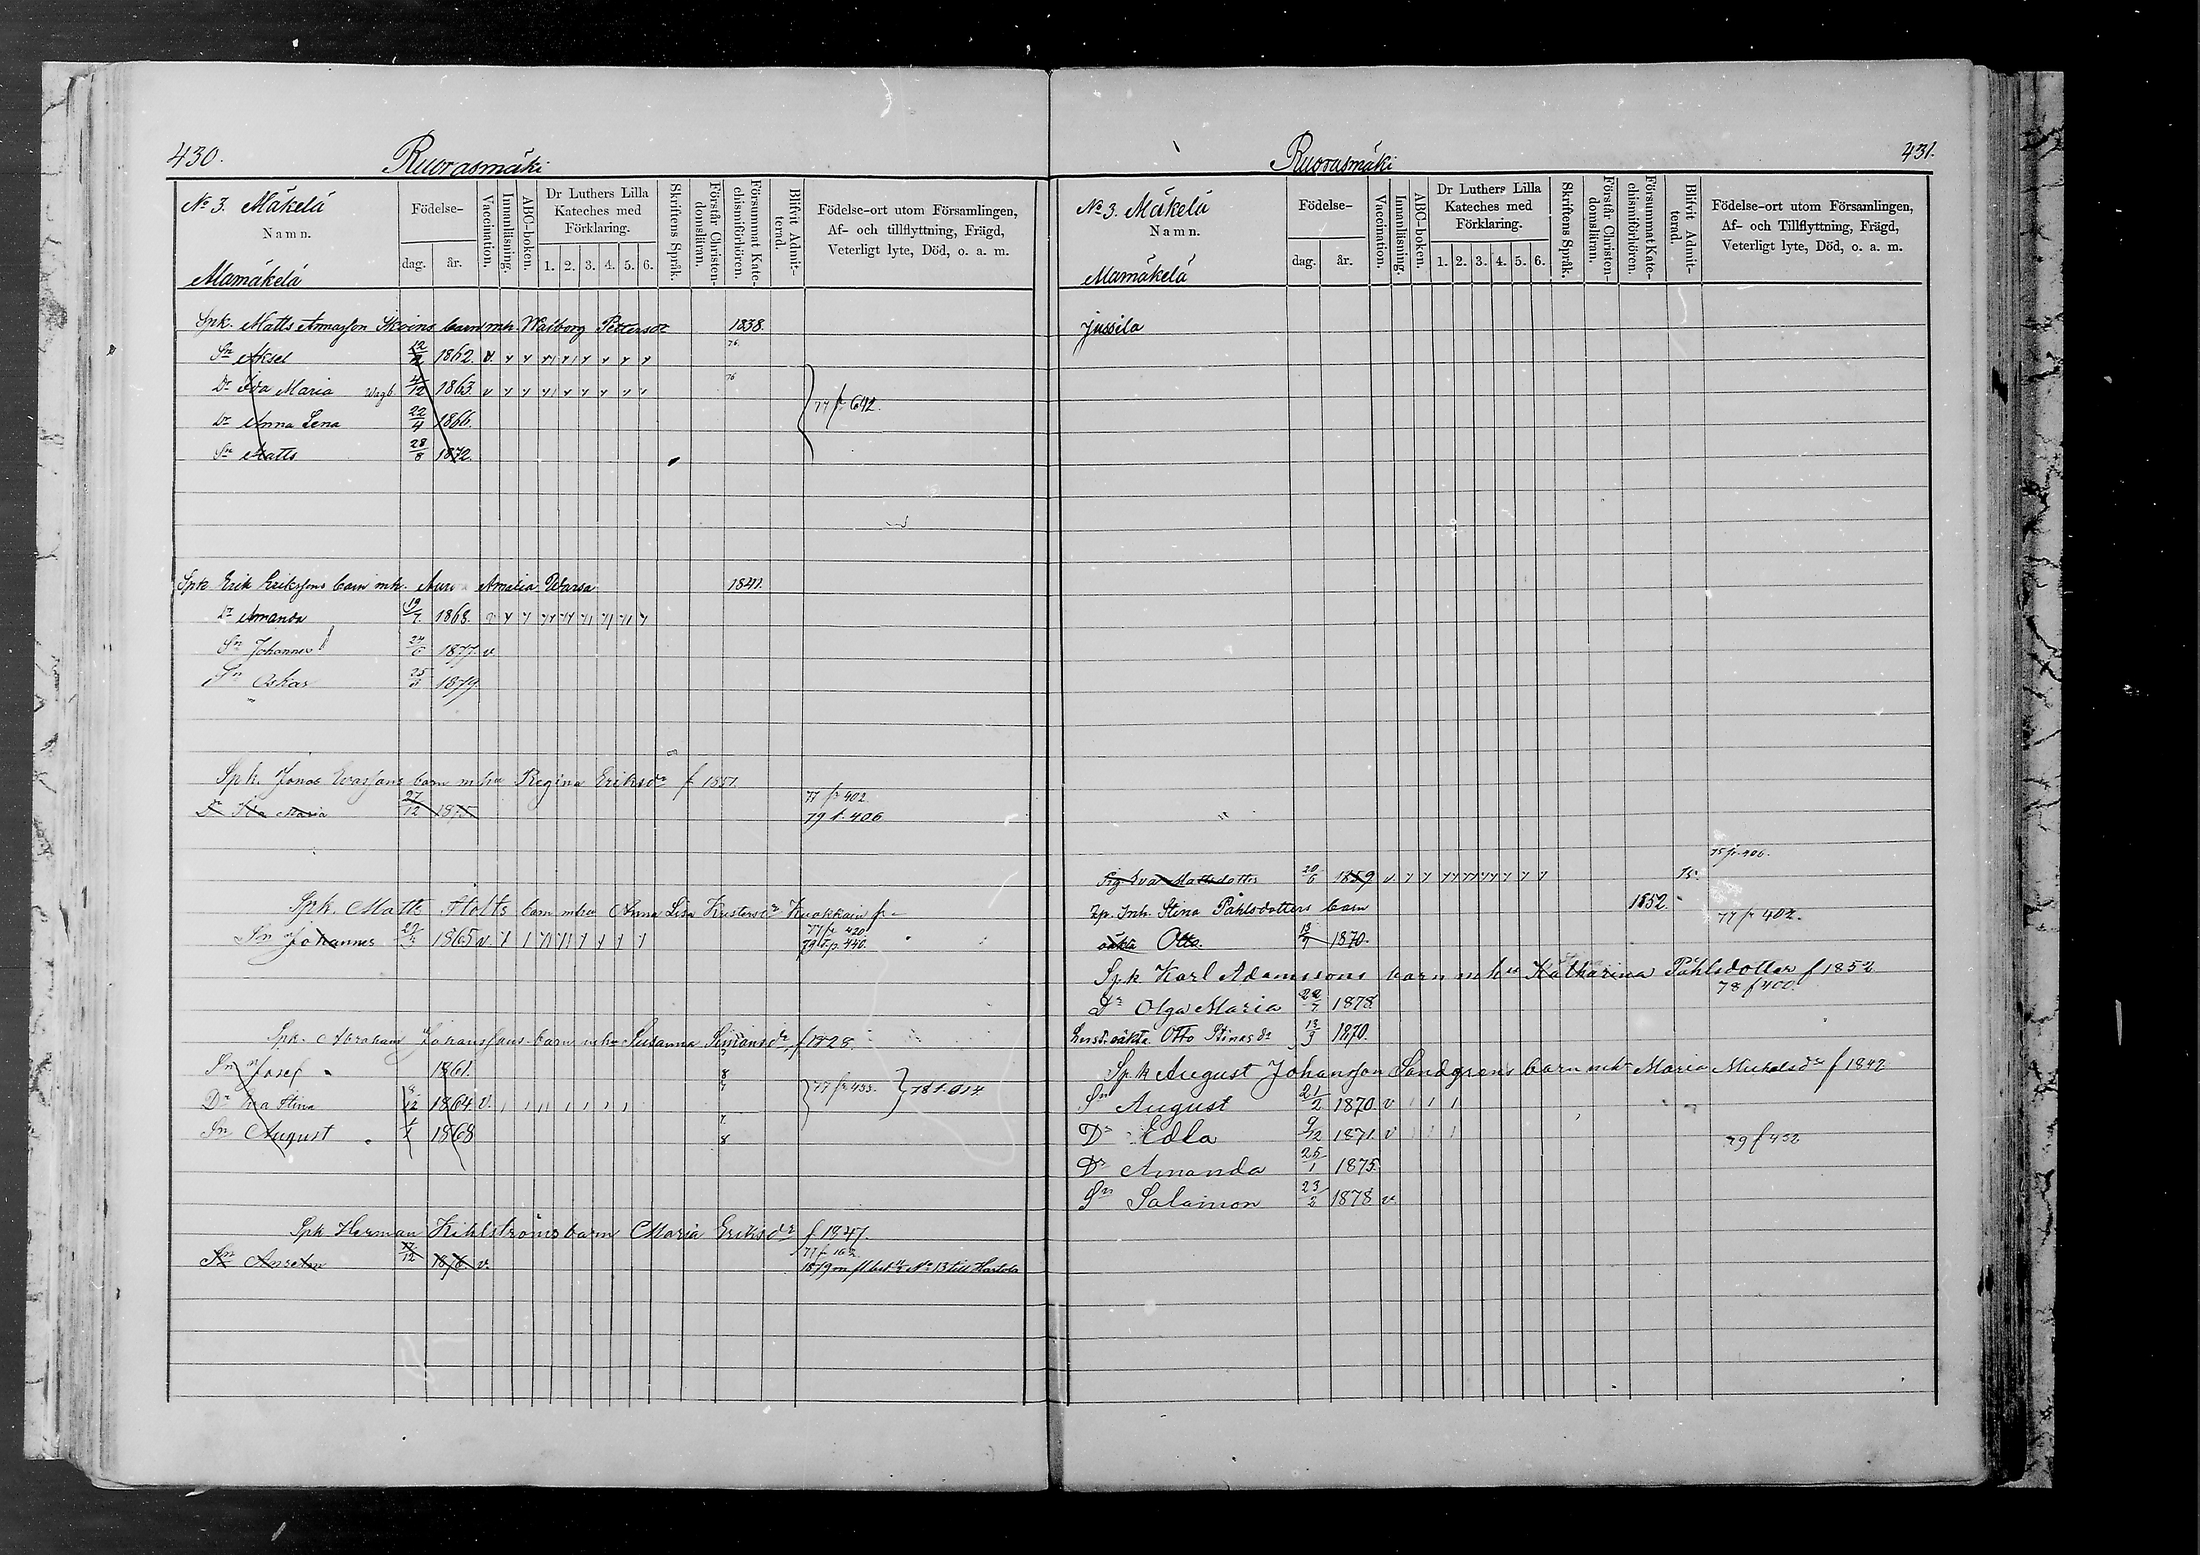 430.
Ruorasmäki
No 3. Mäkelä
Namn.
Mamäkelä
Födelse-
dag.
år.
Vaccination.
Innanläsning.
ABC-boken.
Dr Luthers Lilla
Kateches med
Förklaring.
1. 2. 3. 4. 5. 6.
Skriftens Språk.
Förstår Christen-
domsläran.
Försummat Kate-
chismiförhören.
Blifvit Admit-
terad.
Födelse-ort utom Församlingen,
Af- och tillflyttning, Frägd,
Veterligt lyte, Död, o. a. m.
Spk. Matts barn mh. Walborg Pettersdr 1838.
Sn Aksel 12 1862. v. 76.
Dr Ida Maria 4/12 1863. v 76
77 fr 642.
Dr Anna Lena 22/4 1866.
Sn Matts 28/8 1872.
Spk Erik Erikssons barn mh. Amalia 1841.
Dr Amanda 19/7 1868.
Sn Johannes 24/6 1877. v
Sn Oskar 25 1879.
Spk. Jonas barn mhu Regina Eriksdr f 1851.
77 fr 402.
Dr Ida Maria 27/12 1875
79 t. 406
Spk. Matts Holts barn mhu Anna Lisa
77 fr 420
Sn Johannes 1865 v.
79 t. p. 440.
Spk. Abraham Johanssons barn mhu Susanna Simonsdr f 1828.
Sn Josef 1861. 8
77 fr 433. 78 t. 614
Dr Eva Stina 12 1864 v.
Sn August 1868 8
Spk Herman Kihlströms barn Maria Eriksdr f 1847.
77 fr 162.
Sn Anselm 12 1876 v.
1879 m fl bet No 13 till Hartola
431.
Ruorasmäki
No 3. Mäkelä
Namn.
Mamäkelä
Födelse-
dag.
år.
Vaccination.
Innanläsning.
ABC-boken.
Dr Luthers Lilla
Kateches med
Förklaring.
1. 2. 3. 4. 5. 6.
Skriftens Språk.
Förstår Christen-
domsläran.
Försummat Kate-
chismiförhören.
Blifvit Admit-
terad.
Födelse-ort utom Församlingen,
Af- och Tillflyttning, Frägd,
Veterligt lyte, Död, o. a. m.
Jussila
75 fr. 406.
Pig Eva Mattsdotter 20/6 1859 v 75.
Inh. Stina Påhlsdotters barn 1852.
77 fr 402.
oäkta Otto. 13/9 1870.
Spk Karl Adamssons barn mhu Katharina Påhlsdotter f 1852
78 f 400.
Dr Olga Maria 22/7 1878
oäkta Otto Stinasdr 13/9 1870.
Spk August Johansson Sandgrens barn mhr Maria Mickelsdr f 1842
Sn August 21/2 1870 v
Dr Edla 9/12 1871. v
79 f 432
Dr Amanda 25/1 1875
Sn Salamon 23/2 1878 v.